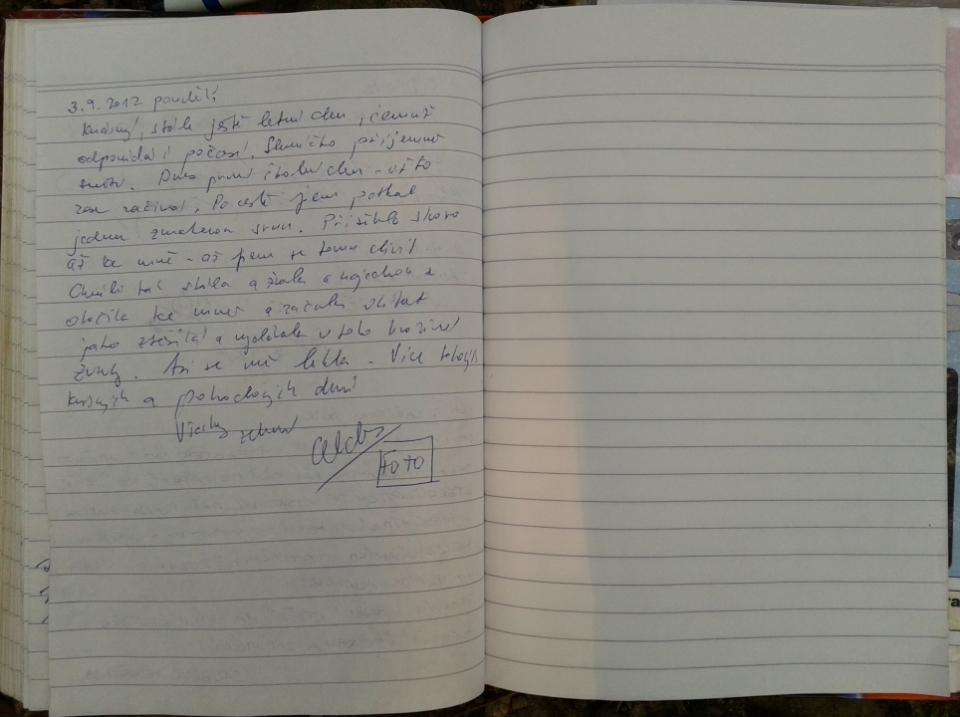 3.9.2012 pondělí
Krásný, stále ještě letní den, čemuž
odpovídá i počasí. Sluníčko příjemně
svítí. Dnes první školní den - už to
zase začíná. Po cestě jsem potkal
jednu zmatenou srnu. Přiběhla skoro
až ke mně - až jsem se tomu divil.
Chvíli tak stála a a najednou se
otočila ke mně a začala utíkat
jako a vydávala u toho
zvuky. Asi se mě lekla. Více takových
krásných a pohodových dnů
Všechny zdraví
FOTO